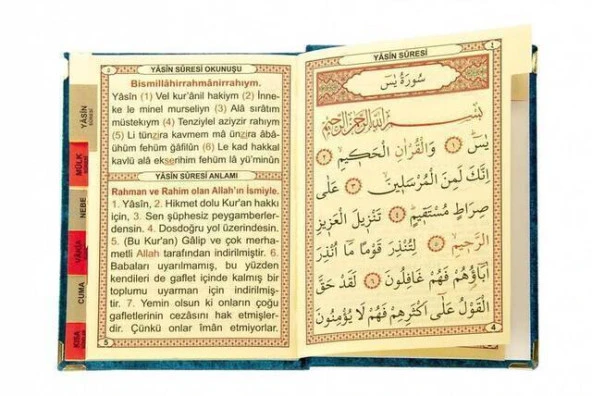 YÂSÎN SÛRESİ OKUNUŞU
Bismillâhirrahmânirrahıym.
Yâsîn (1) Vel kur'ânil hakiym (2) İnne-
ke le minel murseliyn (3) Alâ sırâtım
müstekıym (4) Tenziylel aziyzir rahıym
(5) Li tünzira kavmem mâ ünzira âbâ-
ühüm fehüm ğâfilûn (6) Le kad hakkal
kavlü alâ ekserihim fehüm lâ yü'minûn
YÂSÎN SÛRESİ ANLAMI
Rahman ve Rahim olan Allah'ın İsmiyle.
1. Yâsîn, 2. Hikmet dolu Kur'an hakkı
için, 3. Sen şüphesiz peygamberler-
densin. 4. Dosdoğru yol üzerindesin.
5. (Bu Kur'an) Gâlip ve çok merha-
metli Allah tarafından indirilmiştir. 6.
Babaları uyarılmamış, bu yüzden
kendileri de gaflet içinde kalmış bir
toplumu uyarman için indirilmiş-
tir. 7. Yemin olsun ki onların çoğu
gafletlerinin cezasını hak etmişler-
dir. Çünkü onlar îman etmiyorlar.
5
YÂSÎN
SÛRESİ
MÜLK
NEBE
VÂKIA
CUMA
KISA
YÂSÎN SÛRESİ
سُورَةُ يٰسٓ
بِسْمِ اللّٰهِ الرَّحْمٰنِ الرَّحِيمِ
يٰسٓ ﴿١﴾ وَالْقُرْاٰنِ الْحَكِيمِ ﴿٢﴾
اِنَّكَ لَمِنَ الْمُرْسَلِينَ ﴿٣﴾ عَلٰى
صِرَاطٍ مُسْتَقِيمٍ ﴿٤﴾ تَنْزِيلَ الْعَزِيزِ
الرَّحِيمِ ﴿٥﴾ لِتُنْذِرَ قَوْمًا مَٓا اُنْذِرَ
اٰبَٓاؤُهُمْ فَهُمْ غَافِلُونَ ﴿٦﴾ لَقَدْ حَقَّ
الْقَوْلُ عَلٰٓى اَكْثَرِهِمْ فَهُمْ لَا يُؤْمِنُونَ
4